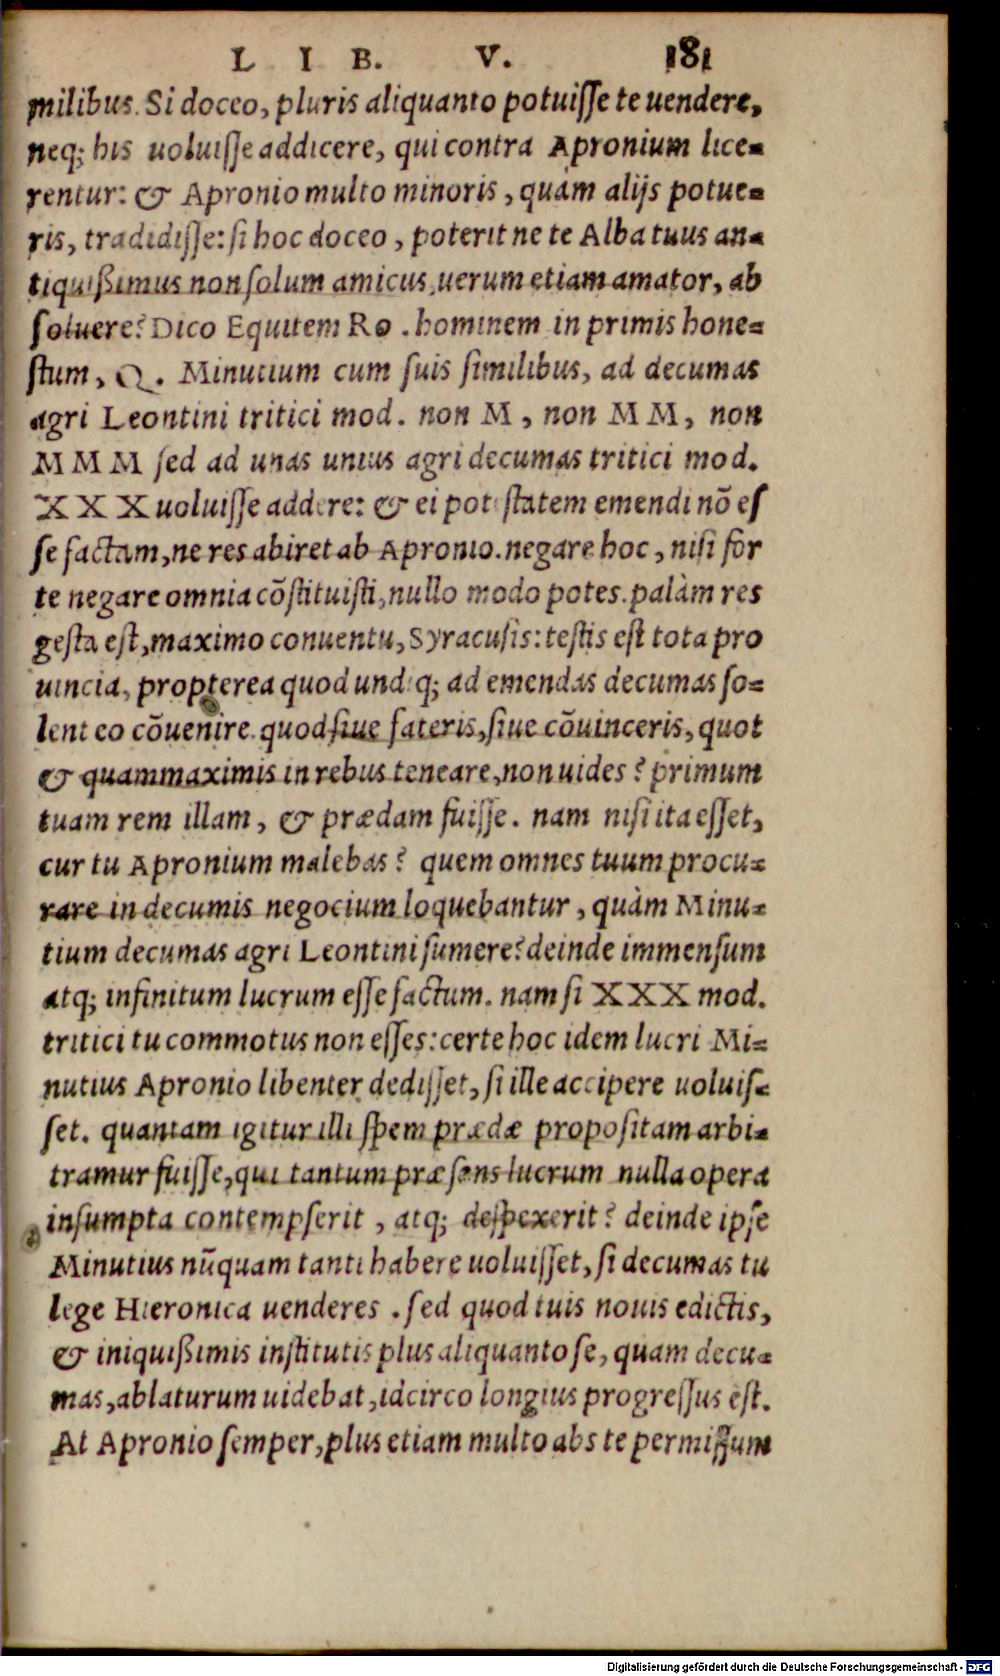 LIB. V. 181
milibus. Si doceo, pluris aliquanto potuisse te uendere,
neq; his uoluisse addicere, qui contra Apronium lice-
rentur: & Apronio multo minoris, quàm alijs potue-
ris, tradidisse: si hoc doceo, poterit ne te Alba tuus an-
tiquißimus non solum amicus, uerum etiam amator, ab
soluere? Dico Equitem Ro. hominem in primis hone-
stum, Q. Minutium cum suis similibus, ad decumas
agri Leontini tritici mod. non M, non MM, non
MMM sed ad unas unius agri decumas tritici mod.
XXX uoluisse addere: & ei potestatem emendi nõ es
se factam, ne res abiret ab Apronio. negare hoc, nisi for
te negare omnia cõstituisti, nullo modo potes. palàm res
gesta est, maximo conuentu, Syracusis: testis est tota pro
uincia, propterea quod undiq; ad emendas decumas so-
lent eo cõuenire. quod siue fateris, siue cõuinceris, quot
& quammaximis in rebus teneare, non uides? primum
tuam rem illam, & prædam fuisse. nam nisi ita esset,
cur tu Apronium malebas? quem omnes tuum procu-
rare in decumis negocium loquebantur, quàm Minu-
tium decumas agri Leontini sumere? deinde immensum
atq; infinitum lucrum esse factum. nam si XXX mod.
tritici tu commotus non esses: certe hoc idem lucri Mi-
nutius Apronio libenter dedisset, si ille accipere uoluis-
set. quantam igitur illi spem prædæ propositam arbi-
tramur fuisse, qui tantum præsens lucrum nulla opera
insumpta contempserit, atq; despexerit? deinde ipse
Minutius nũquam tanti habere uoluisset, si decumas tu
lege Hieronica uenderes. sed quod tuis nouis edictis,
& iniquißimis institutis plus aliquanto se, quam decu-
mas, ablaturum uidebat, idcirco longius progressus est.
At Apronio semper, plus etiam multo abs te permissum
Digitalisierung gefördert durch die Deutsche Forschungsgemeinschaft - DFG